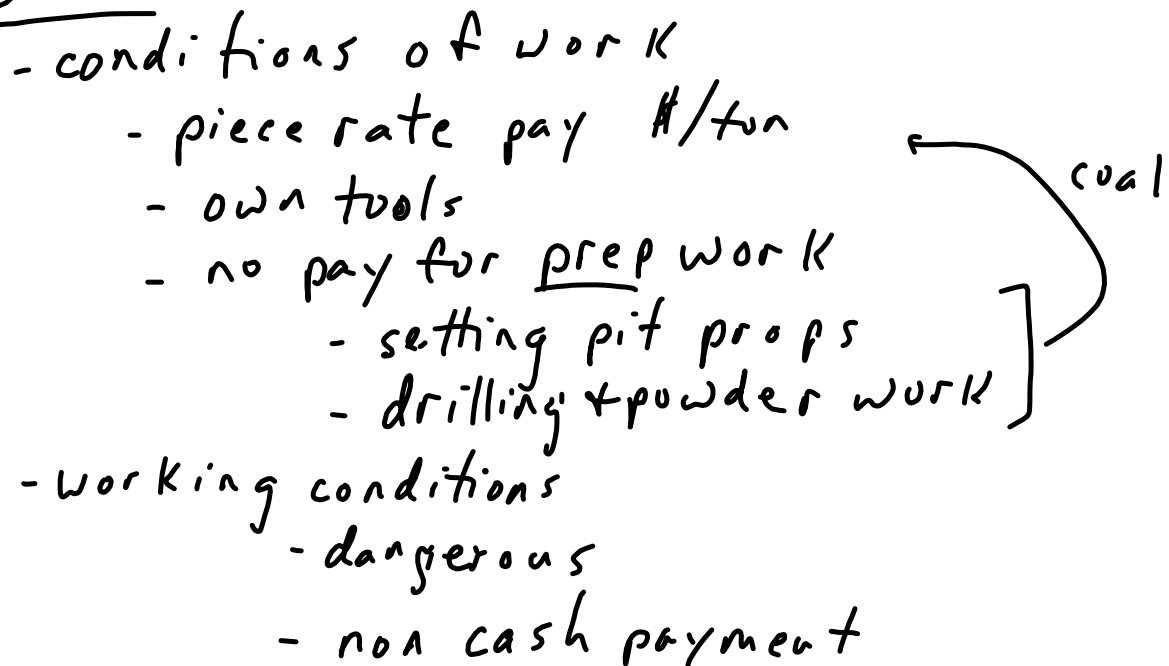 - conditions of work
- piece rate pay $/ton
coal
- own tools
- no pay for prep work
- setting pit props
- drilling + powder work
- working conditions
- dangerous
- non cash payment